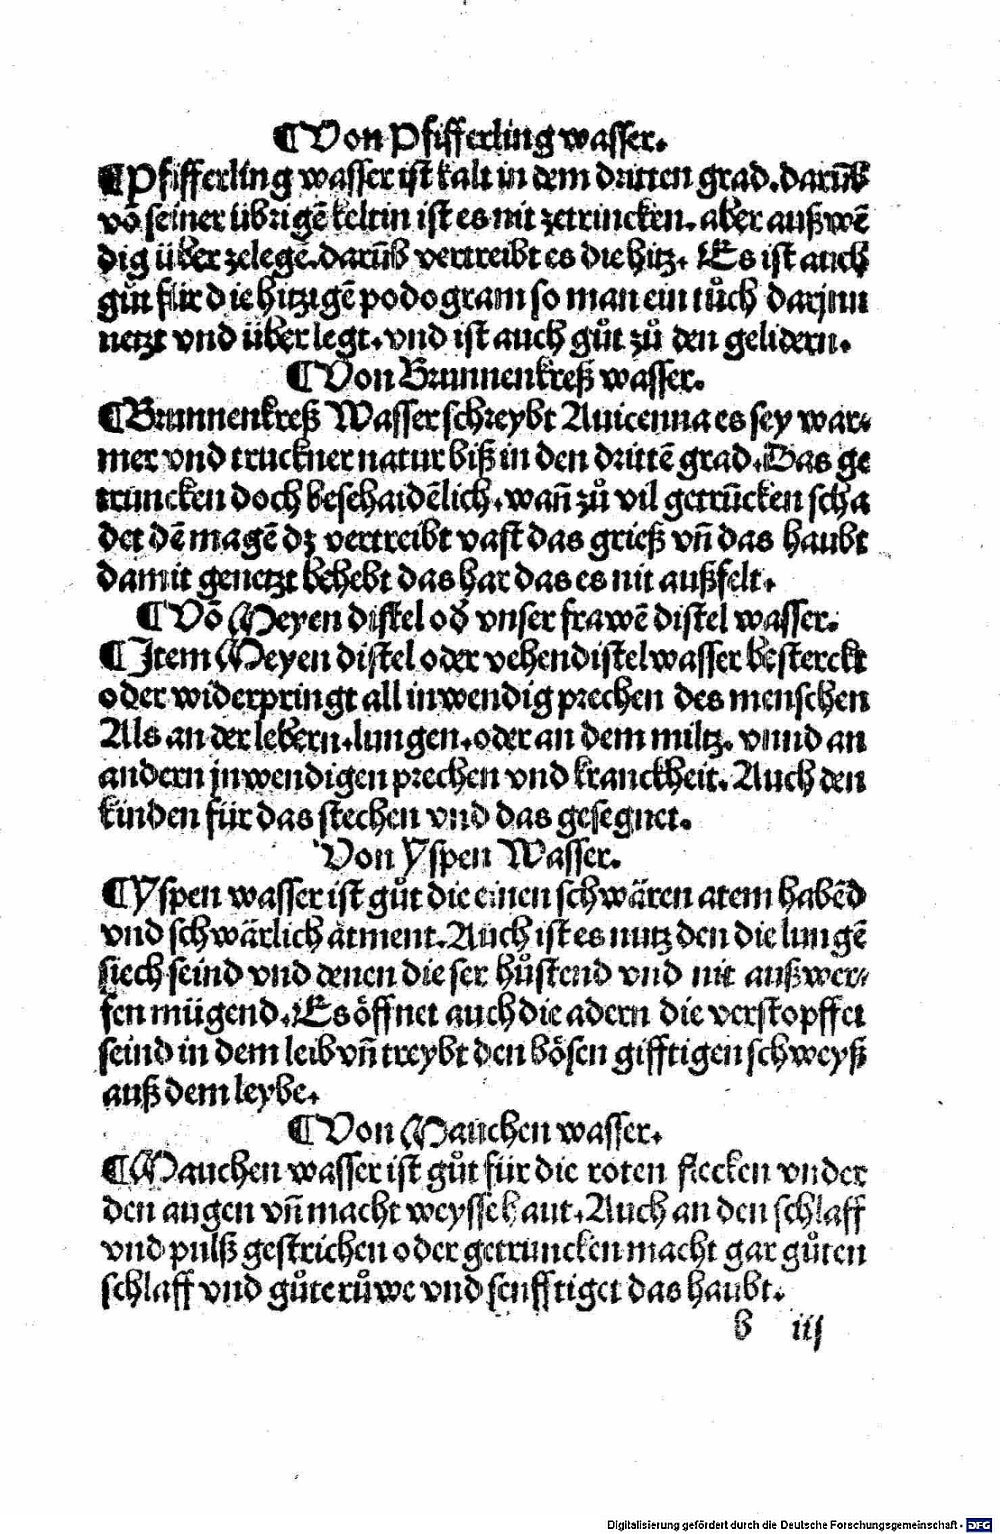 ¶Von Pfifferling wasser.
¶Pfifferling wasser ist kalt in dem dritten grad. darūb
vō seiner übrigē keltin ist es nit zetrincken. aber außwē
dig über zelegē. darūb vertreibt es die hitz. Es ist auch
gůt für die hitzigē podogram so man ein tůch darjnn
netzt vnd über legt. vnd ist auch gůt zů den gelidern.
¶Von Brunnenkreß wasser.
¶Brunnenkreß Wasser schreybt Auicenna es sey war⸗
mer vnd truckner natur biß in den drittē grad. Das ge
truncken doch beschaidēlich. wañ zů vil getrūcken scha
det dē magē dz vertreibt vast das grieß vñ das haubt
damit genetzt behebt das har das es nit außfelt.
¶Vō Meyen distel oď vnser frawē distel wasser.
¶Jtem Meyen distel oder vehendistelwasser besterckt
oder widerpringt all inwendig prechen des menschen
Als an der lebern. lungen. oder an dem miltz. vnnd an
andern jnwendigen prechen vnd kranckheit. Auch den
kinden für das stechen vnd das gesegnet.
Von Yspen Wasser.
¶Yspen wasser ist gůt die einen schwären atem habēd
vnd schwärlich ätment. Auch ist es nutz den die lungē
siech seind vnd denen die ser hůstend vnd nit außwer⸗
fen mügend. Es öffnet auch die adern die verstopffet
seind in dem leib vñ treybt den bösen gifftigen schweyß
auß dem leybe.
¶Von Mauchen wasser.
¶Mauchen wasser ist gůt für die roten flecken vnder
den augen vñ macht weysse haut. Auch an den schlaff
vnd pulß gestrichen oder getruncken macht gar gůten
schlaff vnd gůte růwe vnd senfftiget das haubt.
b iij
Digitalisierung gefördert durch die Deutsche Forschungsgemeinschaft - DFG